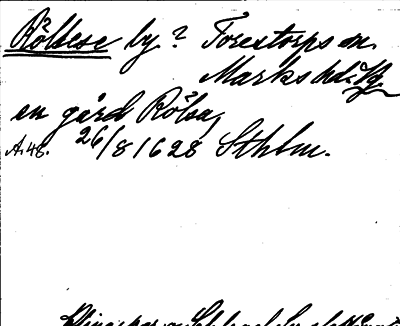 Röltese by? Torestorps sn.
Marks hd.
en gård Rölsa,
A.48. 26/8 1628 Sthlm.